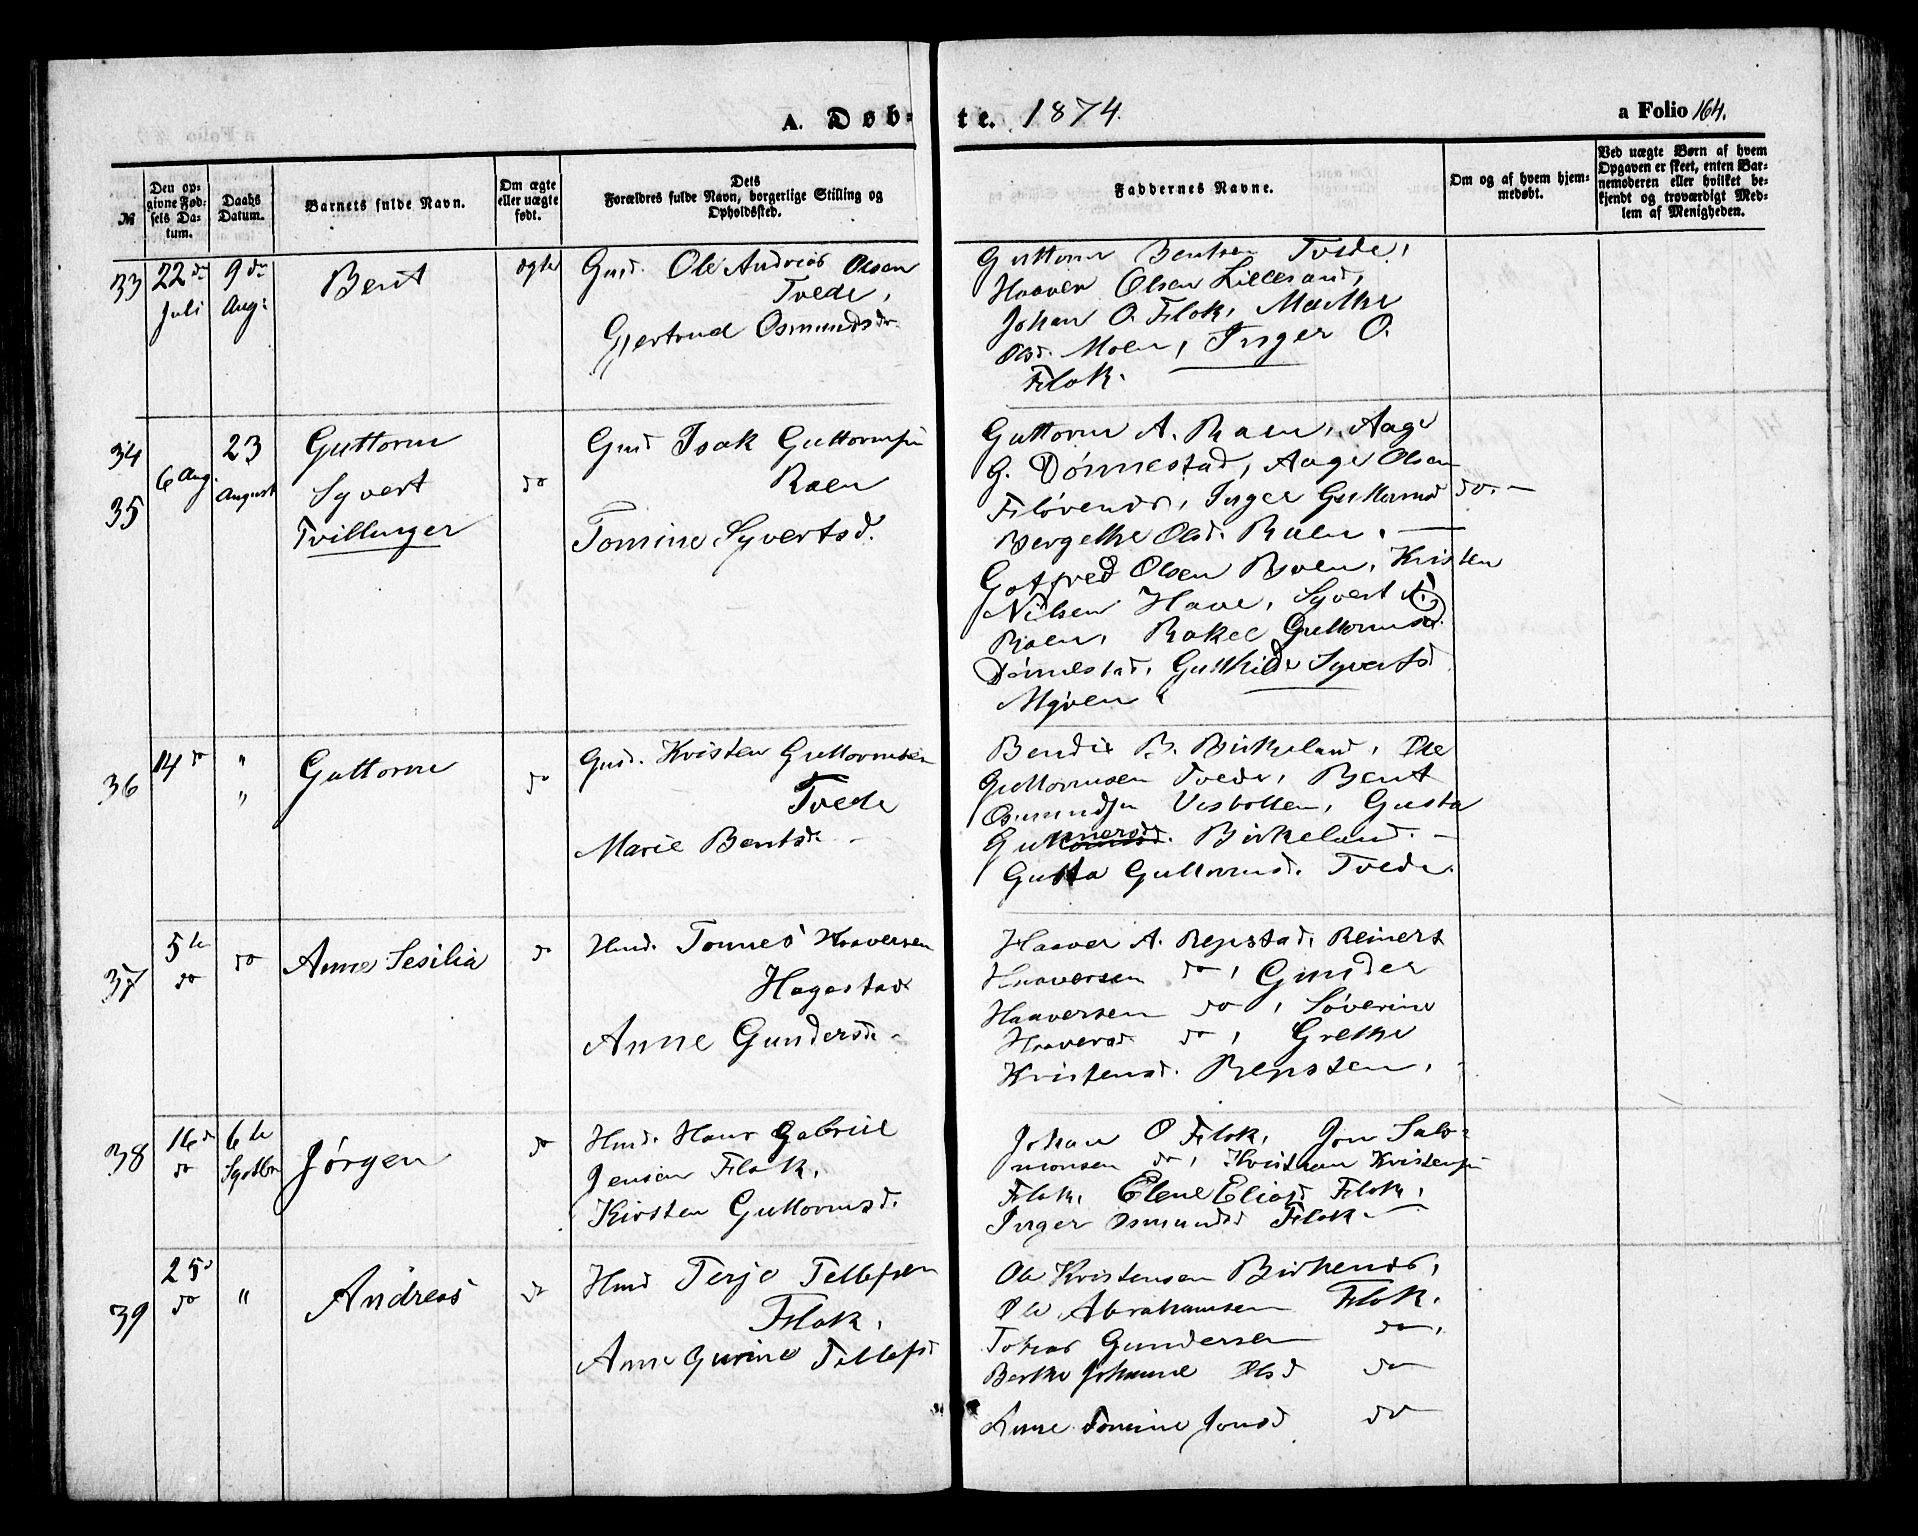 A. Døb- te. 1874.
a Folio 164.
№
Den op-
givne Fød-
sels Da-
tum.
Daabs
Datum.
Barnets fulde Navn.
Om ægte
eller uægte
født.
Dets
Forældres fulde Navn, borgerlige Stilling og
Opholdssted.
Faddernes Navne.
Om og af hvem hjem-
medøbt.
Ved uægte Børn af hvem
Opgaven er skeet, enten Bar-
nemoderen eller hvilket be-
kjendt og troværdigt Med-
lem af Menigheden.
33
22de
Juli
9de
Aug:
Bent
ægte
Gmd. Ole Andreas Olsen
Tvede,
Gjertrud Osmundsdr.
Guttorm Bentsen Tvede,
Haaver Olsen Lillesand,
Johan O. Flok, Marthe
Olsd. Moen, Inger O.
Flok.
34
35
6 Aug.
23
August
Guttorm
Syvert
Tvillinger
do
Gmd Isak Guttormsen
Raen
Tomine Syvertsd.
Guttorm A. Raen, Aage
G. Dønnestad, Aage Olsen
Fløvende, Inger Guttormsd do. -
Bergethe Olsd. Raen.
Gotfred Olsen Boen, Kristen
Nilsen Have, Syvert
Raen, Rakel Guttormsd.
Dønnestad, Gunhilde Syvertsd
Myren
36
14 do
"
"
Guttorm
do
Gmd. Kristen Guttormsen
Tvede
Marie Bentsdr -
Bendix B. Birkeland, Ole
Guttormsen Tvede, Bent
Osmundsen Vesbotten, Gusta
Birkeland. -
Gutta Guttormsd. Tvede.
37
5te
do
do
Anne Sesilia
do
Hmd. Tønnes Haaversen
Hagestad
Anne Gundersdr -
Haaver A. Repstad, Reinert
Haaversen do, Gunder
Haaversen do, Søverine
Haaversd. do, Grethe
Kristensd. Repsten.
38
16 de
do
6te
Sept̄br
Jørgen
do
Hmd. Hans Gabriel
Jensen Flok,
Kirsten Guttormsd.
Johan O Flok, Jon Salo-
monsen do, Kristian Kristensen
Flok, Elene Eliasd Flok,
Inger Osmundsd Flok.
39
25 de
do
"
Andreas
do
Hmd Terje Tellefsen
Flok,
Anne Gurine Tellefsd
Ole Kristensen Birkenes,
Ole Abrahamsen Flok.
Tobias Gundersen do.
Berthe Johanne Olsd do
Anne Tomine Jonsd do